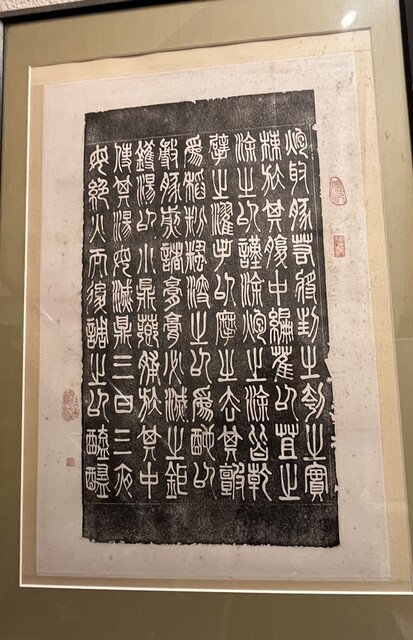 炮取豚若將刲之刳之實
棗於其腹中編萑以苴之
涂之以謹涂炮之涂皆乾
擘之濯手以摩之去其皽
為稻粉糔溲之以為酏以
豚煎諸膏膏必滅之鉅
鑊湯以小鼎薌脯於其中
使其湯毋滅鼎三日三夜
毋絕火而後調之以醯醢